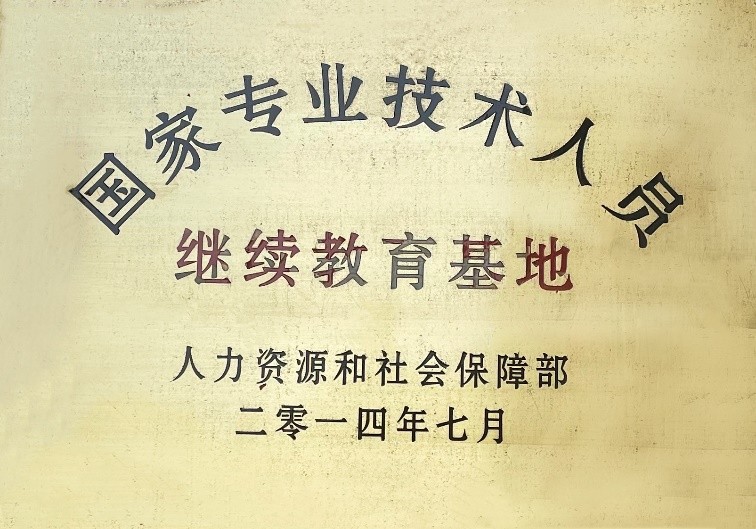 国家专业技术人员
继续教育基地
人力资源和社会保障部
二零一四年七月